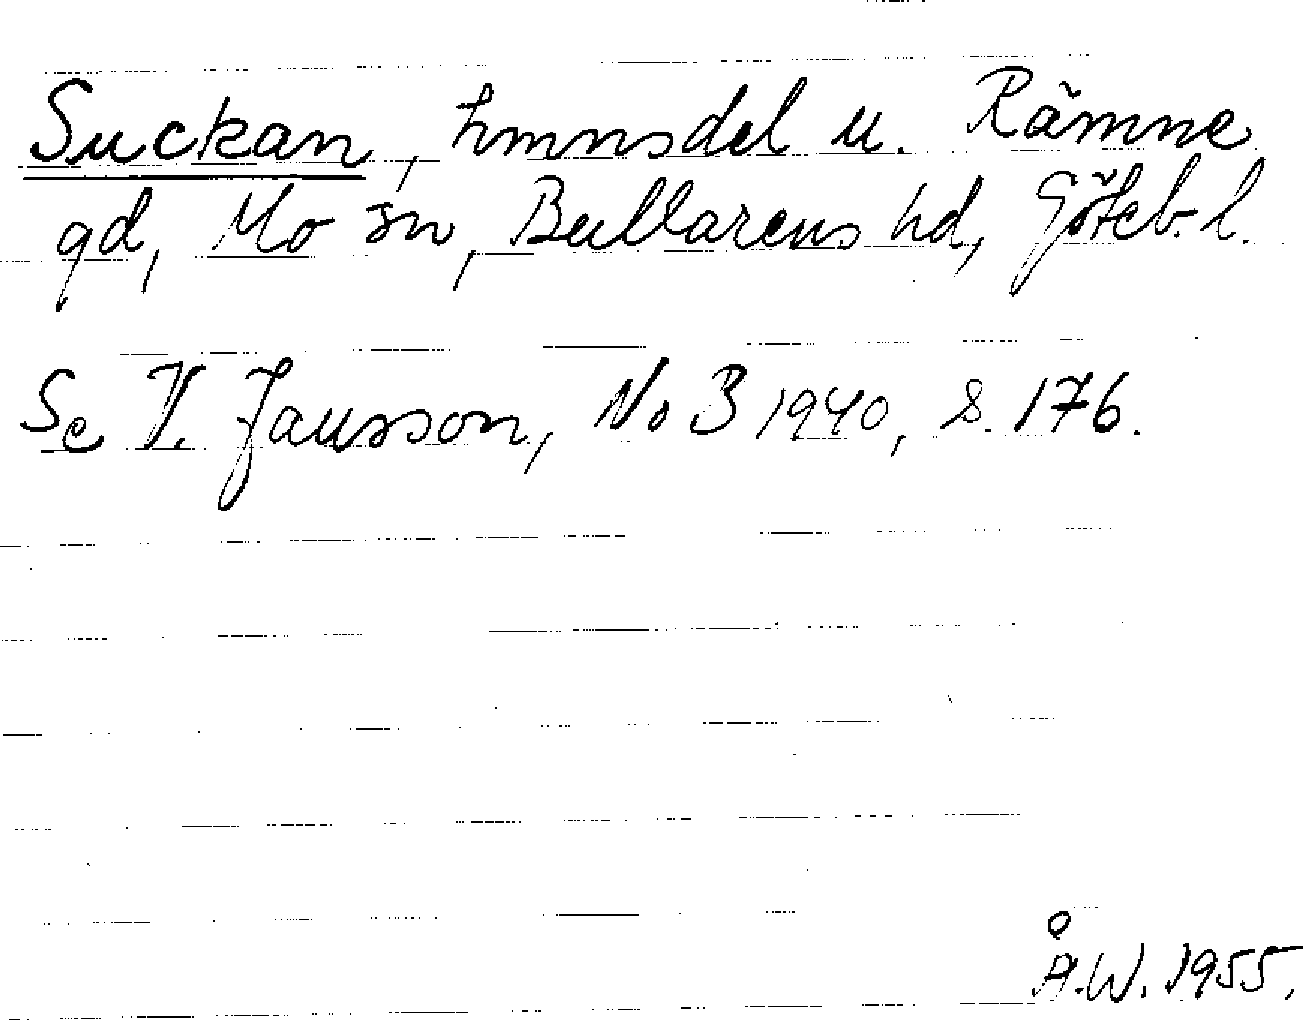 Suckan, hmnsdel u. Rämne
gd, Mo sn, Bullarens hd, Göteb. l.
Se V. Jansson, NoB 1940, s. 176.
Å.W. 1955.